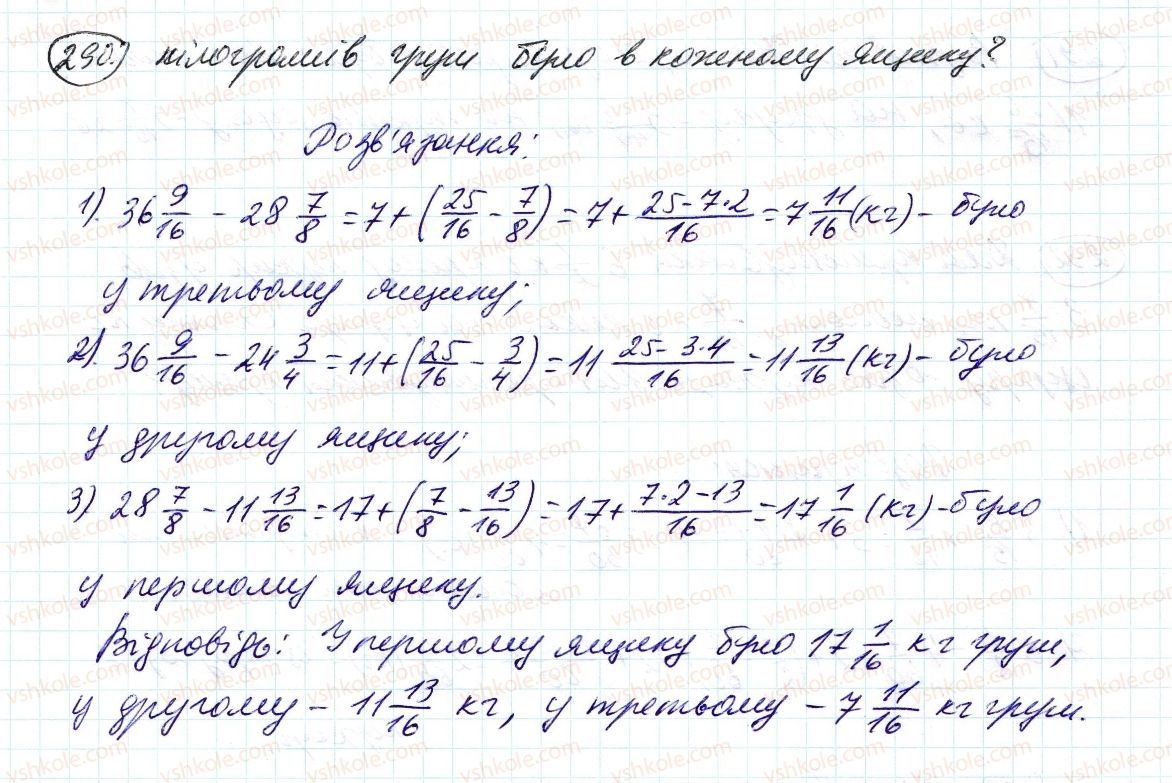 290. кілограмів груш було в кожному ящику?
Розв'язання:
1). 36 9/16 - 28 7/8 = 7 + (25/16 - 7/8) = 7 + (25 - 7·2)/16 = 7 11/16 (кг) - було
у третьому ящику;
2). 36 9/16 - 24 3/4 = 11 + (25/16 - 3/4) = 11 (25 - 3·4)/16 = 11 13/16 (кг) - було
у другому ящику;
3) 28 7/8 - 11 13/16 = 17 + (7/8 - 13/16) = 17 + (7·2 - 13)/16 = 17 1/16 (кг) - було
у першому ящику.
Відповідь: У першому ящику було 17 1/16 кг груш,
у другому - 11 13/16 кг, у третьому - 7 11/16 кг груш.
vshkole.com